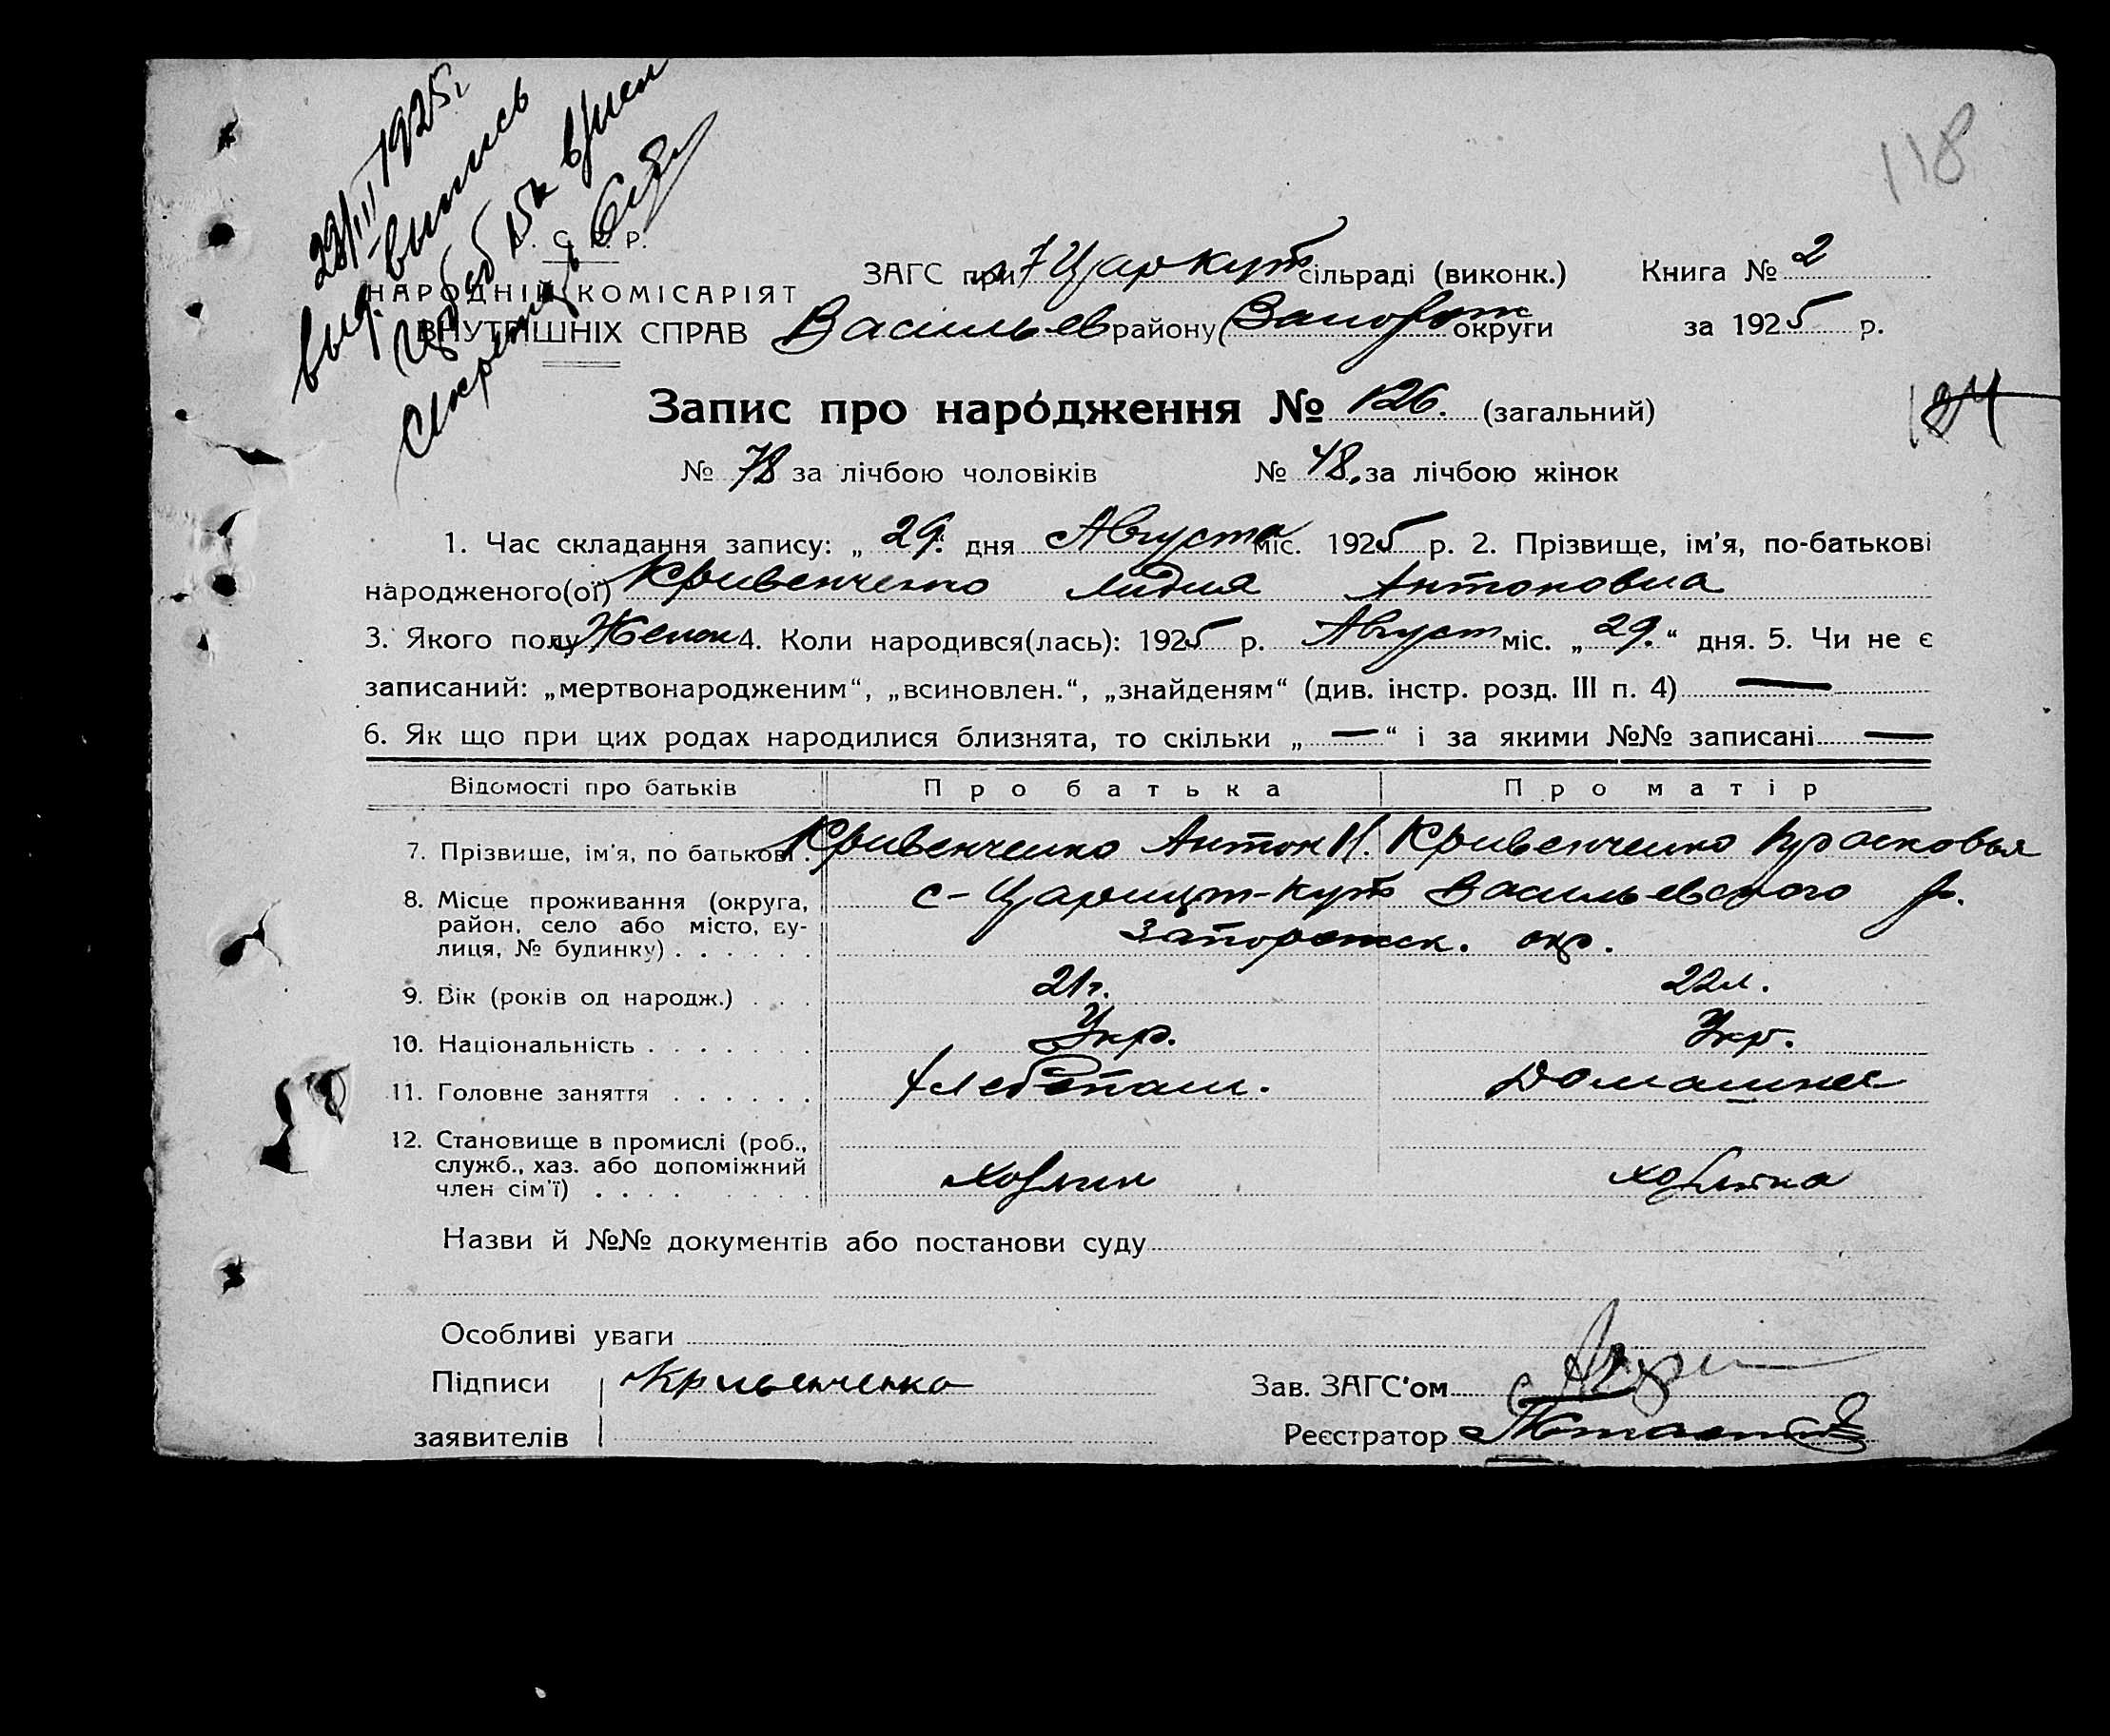 118
1925
выпись
С. Р.
НАРОДНІЙ КОМІСАРІЯТ
ВНУТРІШНІХ СПРАВ
ЗАГС при Царкут сільраді (виконк.) Книга № 2
Васильев району Запорож округи за 1925 р.
Запис про наро́дження № 126. (загальний)
№ 78 за лічбою чоловіків № 48. за лічбою жінок
1. Час складання запису: „ 29. дня Августа міс. 1925 р. 2. Прізвище, ім'я, по-батькові
народженого(ої) Кривенченко Лидия Антоновна
3. Якого полу Женск 4. Коли народився(лась): 1925 р. Август міс. „ 29. “ дня. 5. Чи не є
записаний: „мертвонародженим“, „всиновлен.“, „знайденям“ (див. інстр. розд. III п. 4) —
6. Як що при цих родах народилися близнята, то скільки „ — “ і за якими №№ записані —
Відомості про батьків Про батька Про матір
7. Прізвище, ім'я, по батькові . Кривенченко Антон И. Кривенченко Прасковья
8. Місце проживання (округа, район, село або місто, ву-лиця, № будинку) . . . . . . с-Царицын-Кут Васильевского р.
Запорожск. окр.
9. Вік (років од народж.) . . . 21г. 22л.
10. Національність . . . . . . . Укр. Укр.
11. Головне заняття . . . . . . Хлебопаш. Домашнее
12. Становище в промислі (роб., служб., хаз. або допоміжний член сім'ї) . . . . . . . . хозяин хозяйка
Назви й №№ документів або постанови суду
Особливі уваги
Підписи Кривенченко Зав. ЗАГС'ом
заявителів Реєстратор